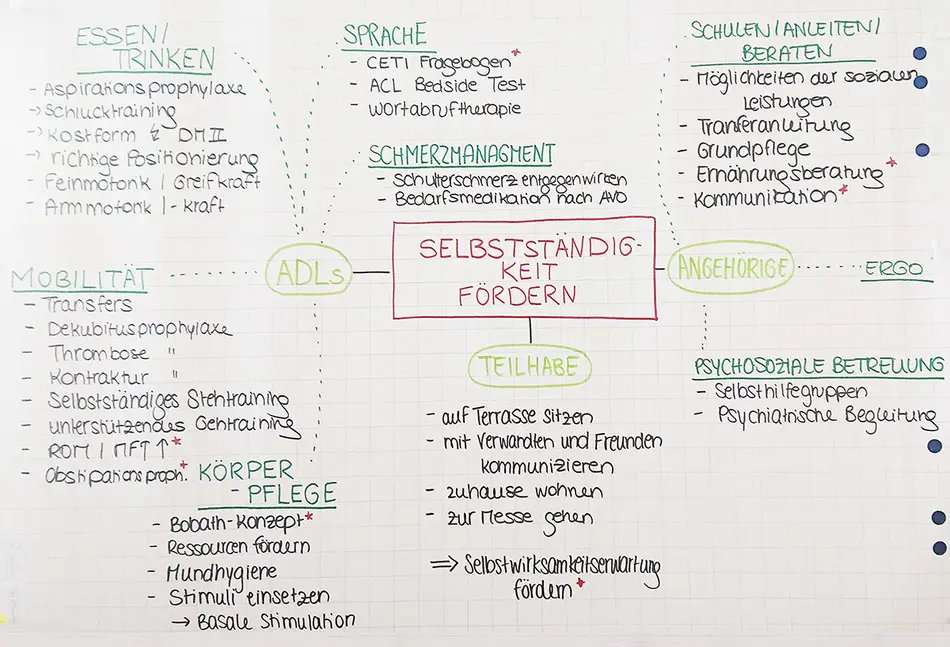 ESSEN/
TRINKEN
- Aspirationsprophylaxe
-> Schlucktraining
-> Kostform ↯ DM II
-> richtige Positionierung
- Feinmotorik / Greifkraft
- Armmotorik / -kraft
SPRACHE
- CETI Fragebogen*
- ACL Bedside Test
- Wortabruftherapie
SCHMERZMANAGMENT
- Schulterschmerz entgegenwirken
- Bedarfsmedikation nach AVO
SCHULEN/ANLEITEN/
BERATEN
- Möglichkeiten der sozialen
Leistungen
- Tranferanleitung
- Grundpflege
- Ernährungsberatung*
- Kommunikation*
SELBSTSTÄNDIG-
KEIT
FÖRDERN
ADLs
ANGEHÖRIGE
ERGO
MOBILITÄT
- Transfers
- Dekubitusprophylaxe
- Thrombose "
- Kontraktur "
- Selbstständiges Stehtraining
- unterstützendes Gehtraining
- ROM / MFT ↑*
- Obstipationsproph.*
KÖRPER
- PFLEGE
- Bobath-Konzept*
- Ressourcen fördern
- Mundhygiene
- Stimuli einsetzen
→ Basale Stimulation
TEILHABE
- auf Terrasse sitzen
- mit Verwandten und Freunden
kommunizieren
- zuhause wohnen
- zur Messe gehen
⇒ Selbstwirksamkeitserwartung
fördern*
PSYCHOSOZIALE BETREUUNG
- Selbsthilfegruppen
- Psychiatrische Begleitung